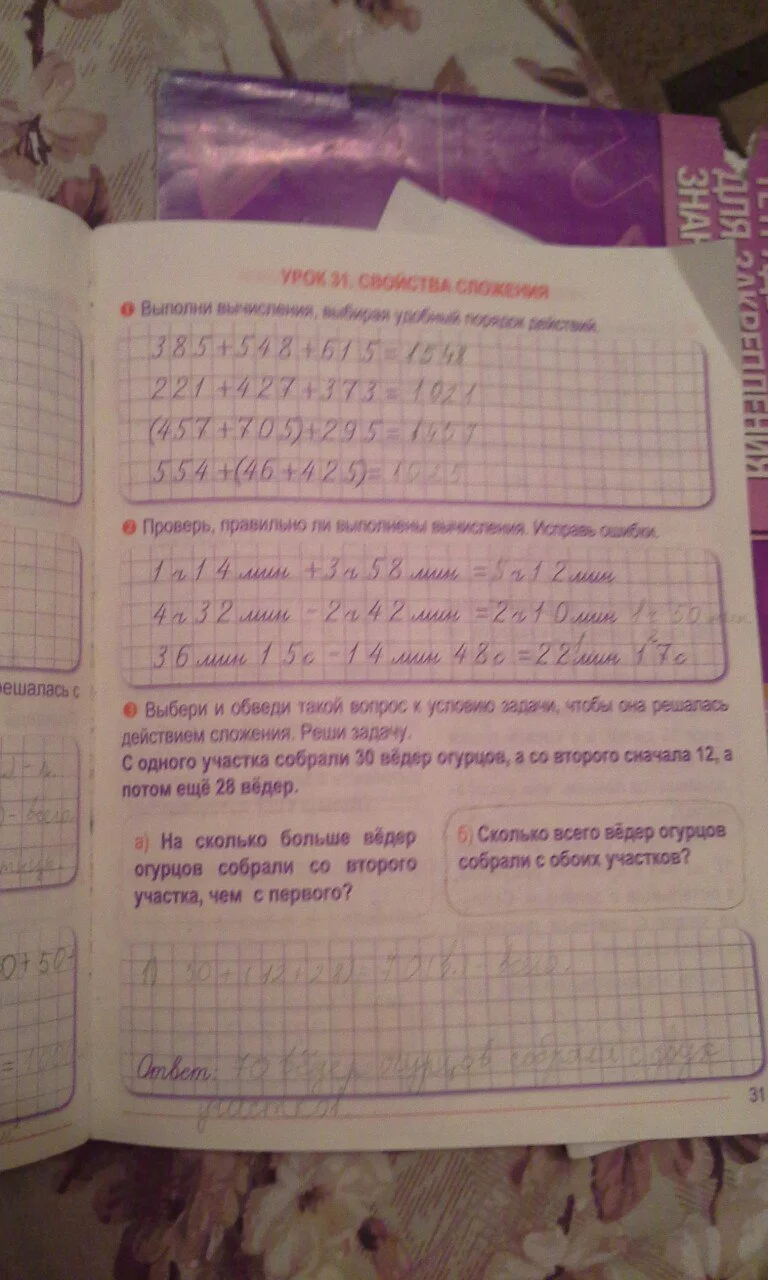 ДЛЯ ЗАКРЕПЛЕНИЯ
ЗНА
УРОК 31. СВОЙСТВА СЛОЖЕНИЯ
1 Выполни вычисления, выбирая удобный порядок действий.
385+548+615=1548
221+427+373=1021
(457+705)+295=1457
554+(46+425)=1025
2 Проверь, правильно ли выполнены вычисления. Исправь ошибки.
1 ч 14 мин + 3 ч 58 мин = 5 ч 12 мин
4 ч 32 мин - 2 ч 42 мин = 2 ч 10 мин 1 ч 50 мин
36 мин 15 с - 14 мин 48 с = 22 мин 17 с
решалась с
3 Выбери и обведи такой вопрос к условию задачи, чтобы она решалась
действием сложения. Реши задачу.
С одного участка собрали 30 вёдер огурцов, а со второго сначала 12, а
потом ещё 28 вёдер.
а) На сколько больше вёдер
огурцов собрали со второго
участка, чем с первого?
б) Сколько всего вёдер огурцов
собрали с обоих участков?
0+50
1) 30+(12+28)=70(в.) - всего.
Ответ: 70 вёдер огурцов собрали с двух
участков.
31